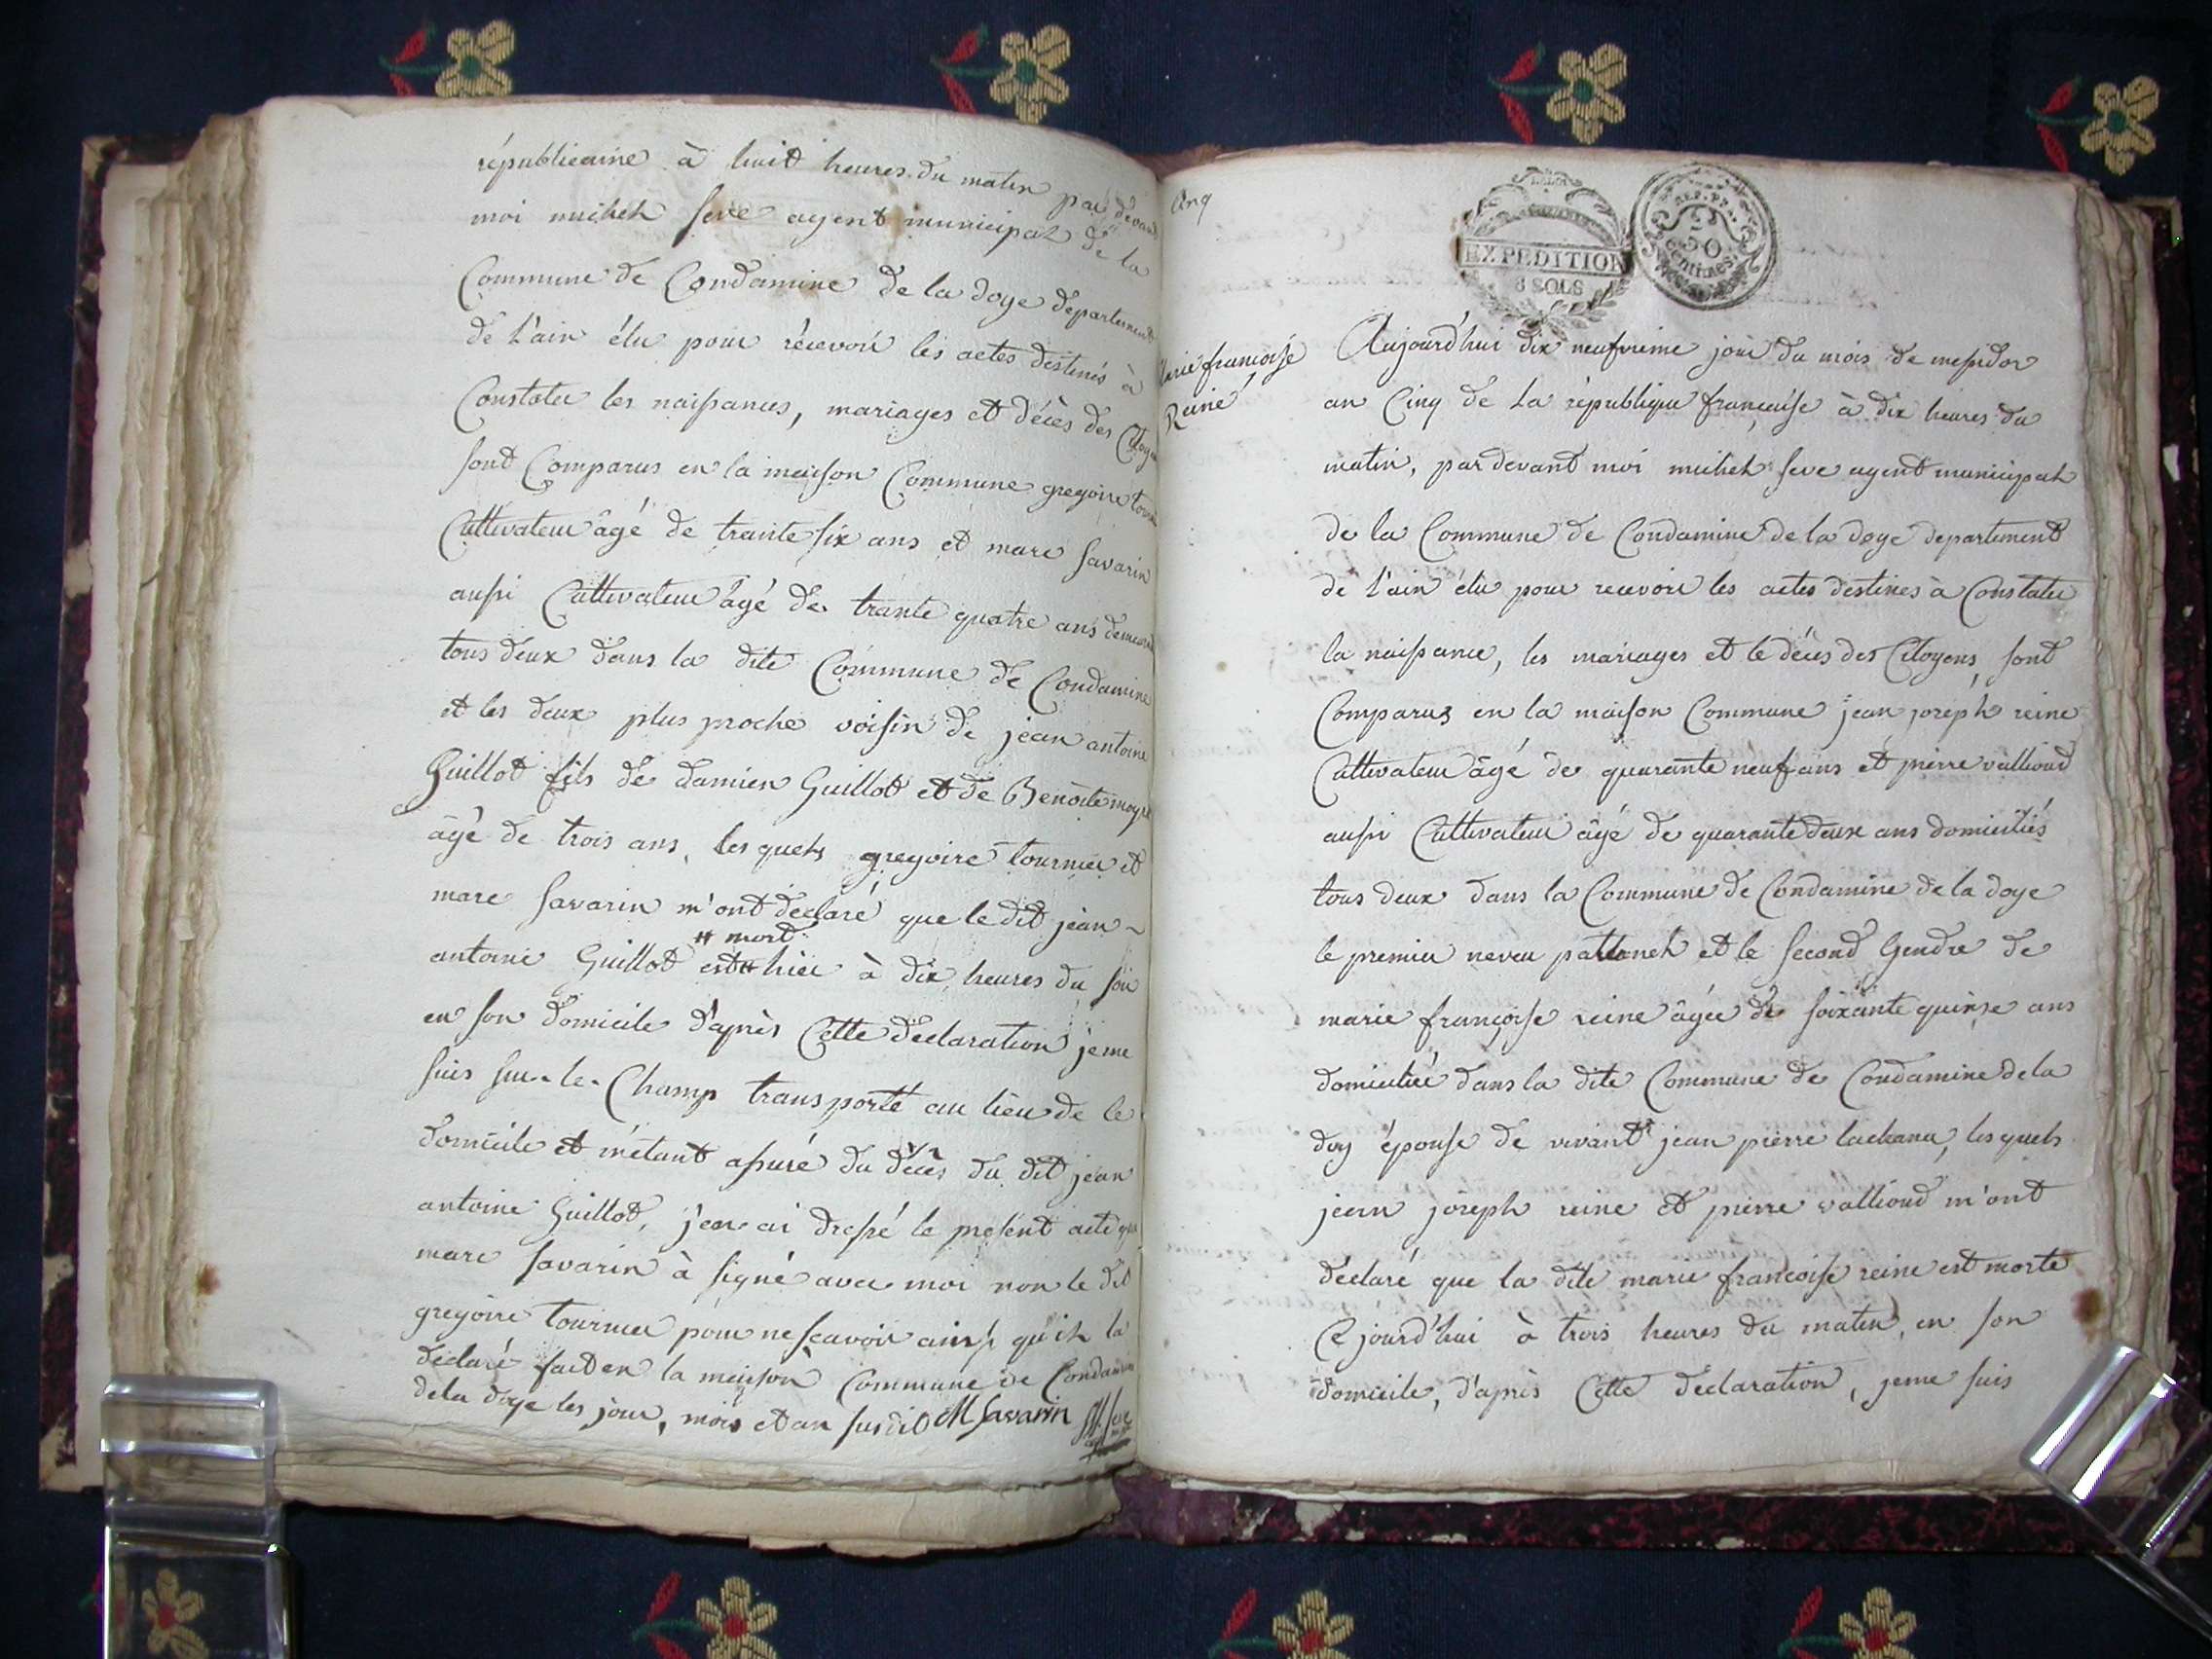 républicaine à huit heures du matin par devant
moi michel seve agent municipal de la
Commune de Condamine de la doye departement
de l'ain élu pour récevoir les actes destinés à
Constater les naissances, mariages et décès des Citoyens
sont Comparus en la maison Commune gregoire
Cultivateur âgé de trante six ans et marc savarin
aussi Cultivateur âgé de trante quatre ans
tous deux dans la dite Commune de Condamine
et les deux plus proche voisin de jean antoine
Guillot fils de damien Guillot et de Benoite
âgé de trois ans, les quels gregoire tournier et
marc savarin m'ont déclaré que le dit jean
# mort
antoine Guillot est # hier à dix heures du soir
en son domicile d'après Cette declaration je me
suis sur-le-Champ transporté au lieu de le
domicile et m'étant assuré du décès du dit jean
antoine Guillot, j'en ai dressé le présent acte que
marc savarin à signé avec moi non le dit
gregoire tournier pour ne scavoir ainsi qu'il la
déclaré fait en la maison Commune de Condamine
dela doye les jour, mois et an susdit M Savarin M. seve
Cinq
EXPEDITION
8 SOLS
REP. FRA.
50
centimes
Marie francoise
Reine
Aujourd'hui dix neufvieme jour du mois de messidor
an Cinq de La république française à dix heures du
matin, par devant moi michel seve agent municipal
de la Commune de Condamine de la doye departement
de l'ain élu pour recevoir les actes destines à Constater
la naissance, les mariages et le décès des Citoyens, sont
Comparus en la maison Commune jean joseph reine
Cultivateur âgé de quarante neuf ans et pierre vallioud
aussi Cultivateur âgé de quarante deux ans domiciliés
tous deux dans la Commune de Condamine de la doye
le premier neveu paternel et le second Gendre de
marie françoise reine âgée de soixante quinse ans
domiciliée dans la dite Commune de Condamine de la
doy épouse de vivant jean pierre, les quels
jean joseph reine et pierre vallioud m'ont
declaré que la dite marie francoise reine est morte
Ce jourd'hui à trois heures du matin, en son
domicile, d'après Cette declaration, je me suis